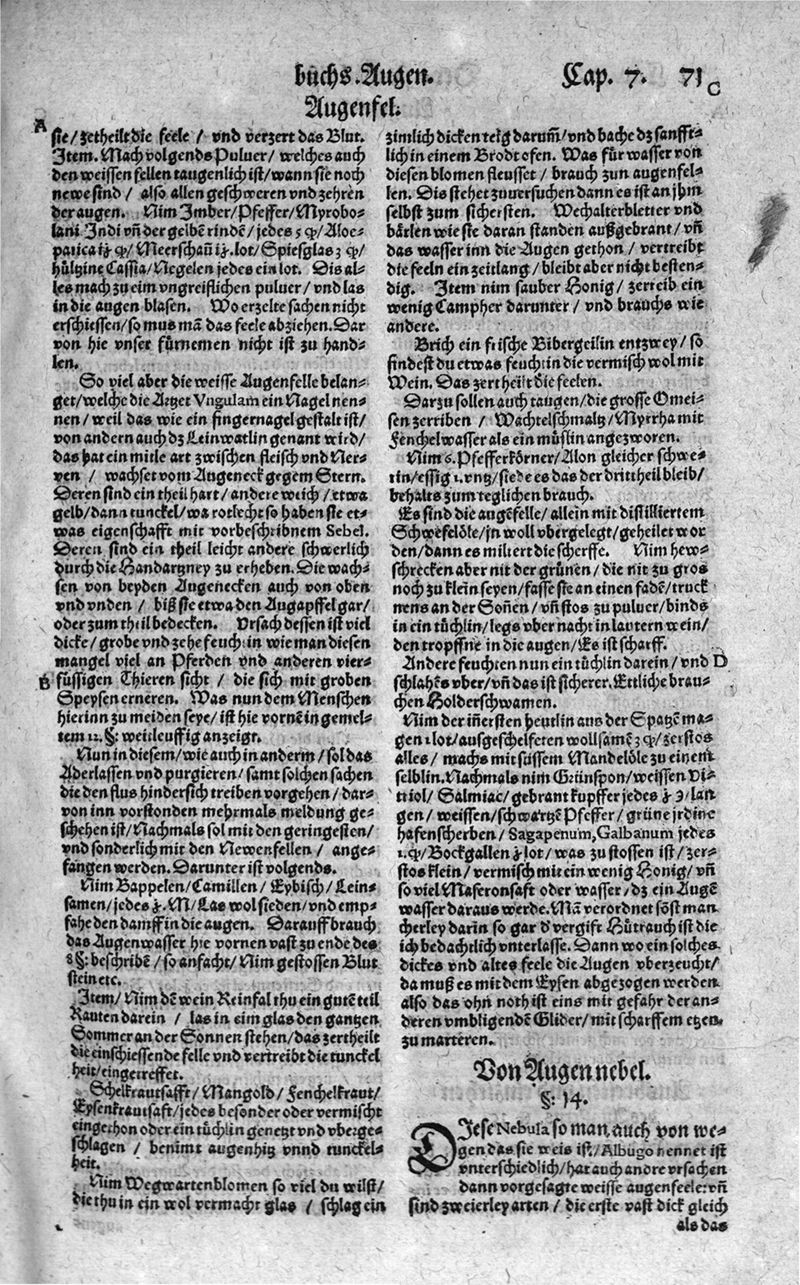 buchs. Augen. Cap. 7. 71
Augenfel.
A
sie/ zetheilt die feele / vnd verzert das Blut.
Item. Mach volgends Puluer/ welches auch
den weissen fellen taugenlich ist/ wann sie noch
newe sind / also allen geschweren vnd zehren
der augen. Nim Imber/ Pfeffer/ Myrobo-
lani Indi vñ der gelbẽ rinde/ jedes
patica
hültzine Cassia/ Negelen jedes ein lot. Dis al-
les mach zu eim vngreiflichen puluer/ vnd las
in die augen blasen. Wo erzelte sachen nicht
erschiessen/ so mus mã das feele abziehen. Dar
von hie vnser fürnemen nicht ist zu hand-
len.
So viel aber die weisse Augenfelle belan-
get/ welche die Artzet Vngulam ein Nagel nen-
nen/ weil das wie ein fingernagel gestalt ist/
von andern auch dz Leinwatlin genant wird/
das hat ein mitle art zwischen fleisch vnd Ner-
ven / wachset vom Augeneck gegem Stern.
Deren sind ein theil hart/ andere weich / etwa
gelb/ dann tunckel/ wa rotlecht so haben sie et-
was eigenschafft mit vorbeschribnem Sebel.
Deren sind ein theil leicht andere schwerlich
durch die Handartzney zu erheben. Die wach-
sen von beyden Augenecken auch von oben
vnd vnden / biß sie etwa den Augapffel gar/
oder zum theil bedecken. Vrsach dessen ist viel
dicke/ grobe vnd zehe feucht: in wie man diesen
mangel viel an Pferden vnd anderen vier-
B
füssigen Thieren sicht / die sich mit groben
Speysen erneren. Was nun dem Menschen
hierinn zu meiden seye/ ist hie vornẽ in gemel-
tem 12. §: weitleuffig anzeigt.
Nun in diesem/ wie auch in anderm/ sol das
Aderlassen vnd purgieren/ samt solchen sachen
die den flus hindersich treiben vorgehen/ dar-
von inn vorstonden mehrmals meldung ge-
schehen ist/ Nachmals sol mit den geringesten/
vnd sonderlich mit den Newenfellen / ange-
fangen werden. Darunter ist volgends.
Nim Bappelen/ Camillen / Eybisch/ Lein-
samen/ jedes M/ Las wol sieden/ vnd emp-
fahe den dampff in die augen. Darauff brauch
das Augenwasser hie vornen vast zu ende des
8 §: beschribẽ / so anfacht/ Nim gestossen Blut
stein etc.
Item/ Nim dẽ wein Reinfal thu ein gutẽ teil
Rauten darein / las in eim glas den gantzen
Sommer an der Sonnen stehen/ das zertheilt
die einschiessende felle vnd vertreibt die tunckel
heit/ eingetreffet.
Schelkrautsafft/ Mangold/ Fenchelkraut/
Eysenkrautsaft/ jedes besonder oder vermischt
eingethon oder ein tüchlin genetzt vnd vberge-
schlagen / benimt augenhitz vnnd tunckel-
heit.
Nim Wegwartenblomen so viel du wilst/
die thu in ein wol vermacht glas / schlag ein
C
zimlich dicken teig darum̃/ vnd bache dz sanfft-
lich in einem Brodtofen. Was für wasser von
diesen blomen fleusset / brauch zun augenfel-
len. Dis stehet zuuersuchen dann es ist an jhm
selbst zum sichersten. Wechalterbletter vnd
bärlen wie sie daran standen außgebrant/ vñ
das wasser inn die Augen gethon / vertreibt
die feeln ein zeitlang / bleibt aber nicht besten-
dig. Item nim sauber Honig / zerreib ein
wenig Campher darunter / vnd brauchs wie
andere.
Brich ein frische Bibergeilin entzwey / so
findest du etwas feucht: in die vermisch wol mit
Wein. Das zertheilt die feelen.
Darzu sollen auch taugen/ die grosse Omei-
sen zerriben / Wachtelschmaltz/ Myrrha mit
Fenchelwasser als ein müslin angezworen.
Nim 6. Pfefferkörner/ Alon gleicher schwe-
rin/ essig 1. vntz/ siede es das der drittheil bleib/
behalts zum teglichen brauch.
Es sind die augẽfelle/ allein mit distilliertem
Schwefelöle/ jn woll vbergelegt/ geheilet wor
den/ dann es miltert die scherffe. Nim hew-
schrecken aber nit der grünen/ die nit zu gros
noch zu klein seyen/ fasse sie an einen fadẽ/ truck
nens an der Soñen/ vñ stos zu puluer/ binds
in ein tüchlin/ legs vber nacht in lautern wein/
den tropffne in die augen/ Es ist scharff.
Andere feuchten nun ein tüchlin darein/ vnd
D
schlahẽs vber/ vñ das ist sicherer. Ettliche brau-
chen Holderschwamen.
Nim der iñersten heutlin aus der Spatzẽ ma-
gen 1 lot/ ausgeschelfeten wollsamẽ zerstos
alles / machs mit süssem Mandelöle zu einem
selblin. Nachmals nim Grünspon/ weissen Vi-
triol/ Salmiac/ gebrant kupffer jedes lan-
gen / weissen/ schwartzẽ Pfeffer/ grüne jrdine
hafenscherben / Sagapenum, Galbanum jedes
Bockgallen lot / was zu stossen ist/ zer-
stos klein/ vermisch mit ein wenig Honig/ vñ
so viel Maseronsaft oder wasser/ dz ein Augẽ
wasser daraus werde. Mã verordnet sõst man
cherley darin so gar d' vergift Hütrauch ist die
ich bedachtlich vnterlasse. Dann wo ein solches
dickes vnd altes feele die Augen vberzeucht/
da muß es mit dem Eysen abgezogen werden
also das ohn noth ist eins mit gefahr der an-
deren vmbligendẽ Glider/ mit scharffem etzen
zu marteren.
Von Augennebel.
§: 14.
DIese Nebula so man auch von we-
gen das sie weis ist/ Albugo nennet ist
vnterschiedlich/ hat auch andre vrsachen
dann vorgesagte weisse augenfeele: vñ
sind zweierley arten / die erste vast dick gleich
als das